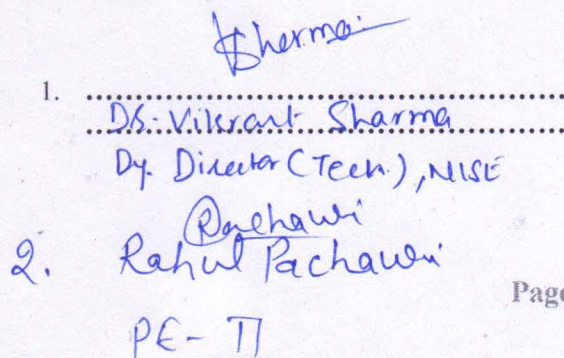 VSharma
1. ........................................
Dr. Vikrant Sharma
Dy. Director (Tech.), NISE
RPachauri
2. Rahul Pachauri
Page
PE-II